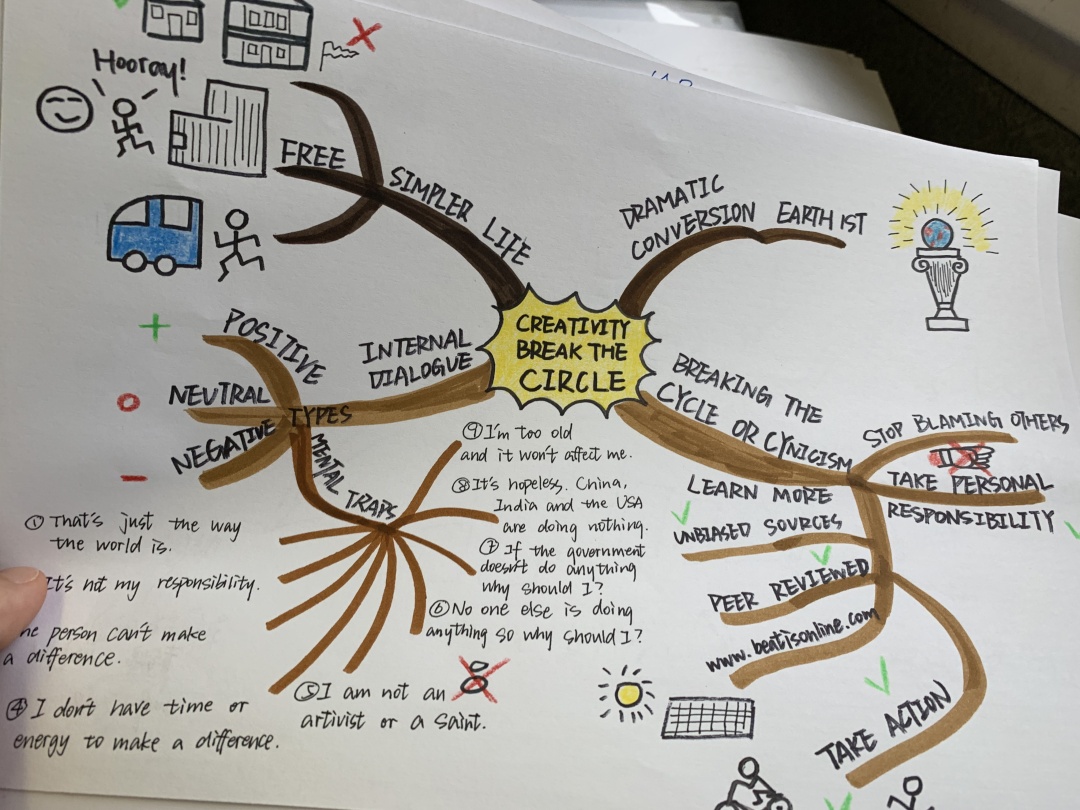 Hooray!
FREE
SIMPLER LIFE
DRAMATIC
CONVERSION EARTHIST
CREATIVITY
BREAK THE
CIRCLE
INTERNAL
DIALOGUE
POSITIVE
NEUTRAL
TYPES
NEGATIVE
MENTAL TRAPS
① That's just the way
the world is.
It's not my responsibility.
person can't make
a difference.
④ I don't have time or
energy to make a difference.
⑤ I am not an
artivist or a saint.
⑥ No one else is doing
anything so why should I?
⑦ If the government
doesn't do anything
why should I?
⑧ It's hopeless. China,
India and the USA
are doing nothing.
⑨ I'm too old
and it won't affect me.
BREAKING THE
CYCLE OR CYNICISM
STOP BLAMING OTHERS
TAKE PERSONAL
RESPONSIBILITY
LEARN MORE
UNBIASED SOURCES
PEER REVIEWED
www.beatisonline.com
TAKE ACTION